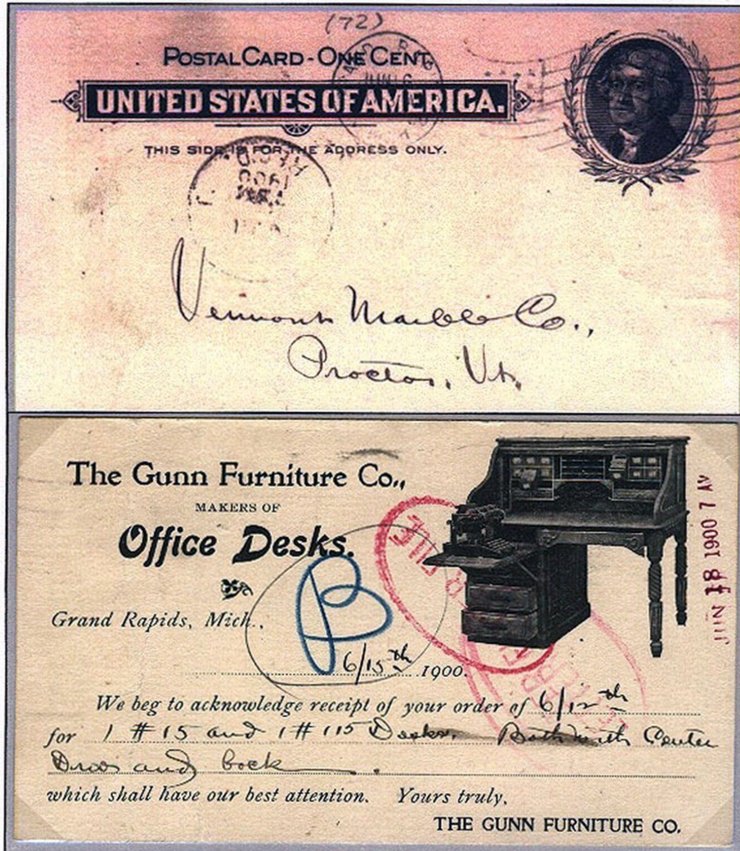 (72)
POSTAL CARD - ONE CENT
UNITED STATES OF AMERICA.
THIS SIDE IS FOR THE ADDRESS ONLY.
1900
Vermont Marble Co.,
Proctor, Vt.
The Gunn Furniture Co.,
MAKERS OF
Office Desks.
B
FILE
JUN 18 1900 7 AM
Grand Rapids, Mich.,
6/15th 1900.
We beg to acknowledge receipt of your order of 6/12th
for 1 #15 and 1 #115 Desks. Both with Center
Draw and lock.
which shall have our best attention. Yours truly,
THE GUNN FURNITURE CO.